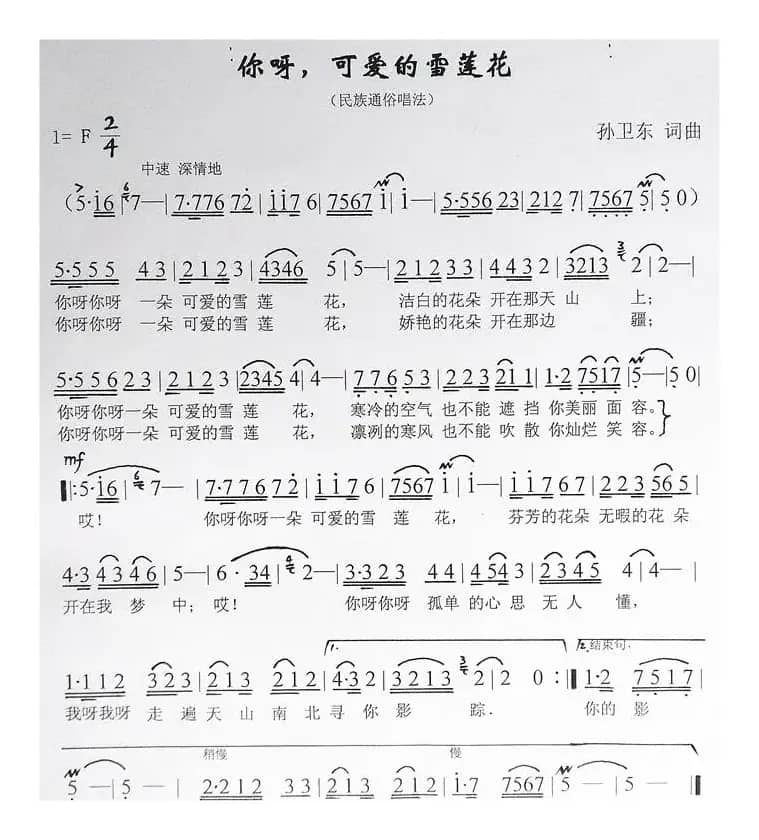 你呀，可爱的雪莲花
（民族通俗唱法）
1= F 2/4
孙卫东 词曲
中速 深情地
（5·i6 | 7— | 7·776 72 | ii76 | 7567 i | i— | 5·556 23 | 212 7 | 7567 5 | 5 0）
5·555 43 | 2123 | 4346 5 | 5— | 2123 3 | 4432 | 3213 2 | 2— |
你呀你呀 一朵 可爱的雪 莲 花， 洁白的花朵 开在那天 山 上；
你呀你呀 一朵 可爱的雪 莲 花， 娇艳的花朵 开在那边 疆；
5·556 23 | 2123 | 2345 4 | 4— | 7·76·53 | 223 211 | 1·2 7517 | 5— | 5 0
你呀你呀一朵 可爱的雪 莲 花， 寒冷的空气 也不能 遮 挡 你美丽 面 容。
你呀你呀一朵 可爱的雪 莲 花， 凛冽的寒风 也不能 吹 散 你灿烂 笑 容。
mf
‖: 5·i6 | 7— | 7·776 72 | ii76 | 7567 i | i— | ii767 | 223 565 |
哎！ 你呀你呀一朵 可爱的雪 莲 花， 芬芳的花朵 无暇的花 朵
4·3 4346 | 5— | 6·34 | 2— | 3·323 44 | 4543 | 2345 | 4 | 4— |
开在我 梦 中；哎！ 你呀你呀 孤单 的心 思 无 人 懂，
1. 2.结束句.
1·112 323 | 213 212 | 4·32 3213 | 2 | 2 0 :‖ 1·2 7517 |
我呀我呀 走 遍 天 山 南 北 寻 你 影 踪. 你的 影
稍慢 慢
5 — | 5 — | 2·212 33 | 213 212 | i·7 7567 | 5 — | 5 — ‖